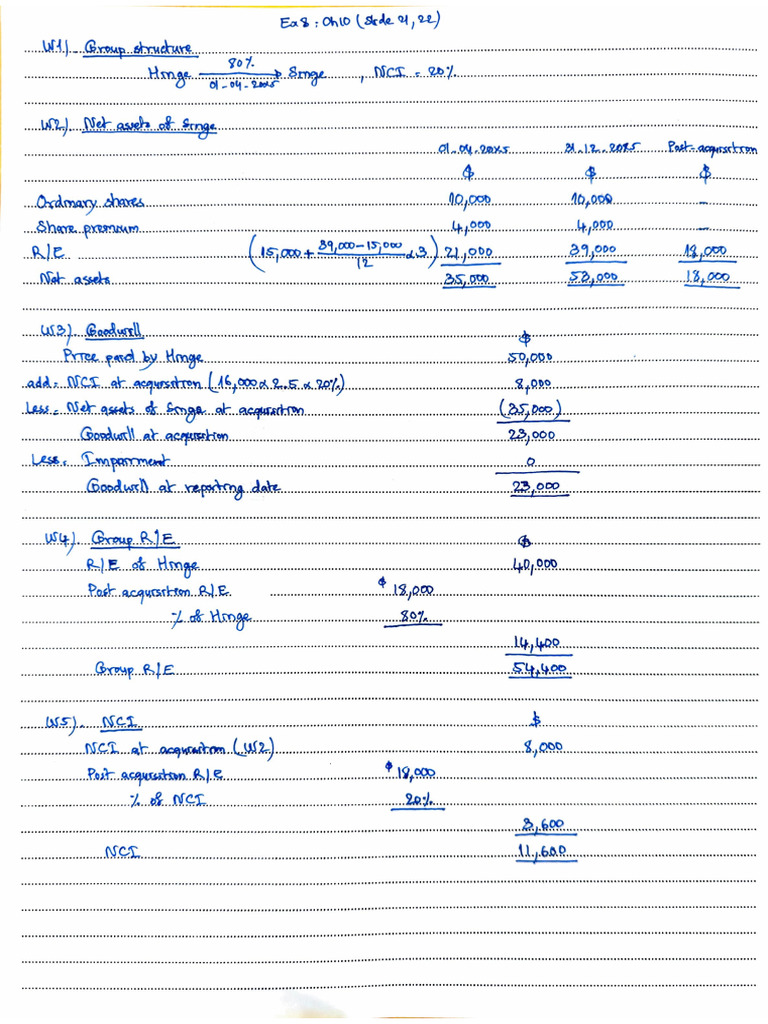 Ex 8 : Ch10 (Slide 21, 22)
W1). Group structure
80%
Hinge → Singe , NCI = 20%
01-04-20x5
W2). Net assets of Singe
01.04.20x5 31.12.20x5 Post-acquisition
$ $ $
Ordinary shares 10,000 10,000 -
Share premium 4,000 4,000 -
R/E (15,000 + (39,000-15,000)/12 x 3) 21,000 39,000 18,000
Net assets 35,000 53,000 18,000
W3). Goodwill $
Price paid by Hinge 50,000
add: NCI at acquisition (16,000 x 2.5 x 20%) 8,000
Less: Net assets of Singe at acquisition (35,000)
Goodwill at acquisition 23,000
Less: Impairment 0
Goodwill at reporting date 23,000
W4). Group R/E $
R/E of Hinge 40,000
Post acquisition R/E $ 18,000
% of Hinge 80%
14,400
Group R/E 54,400
W5). NCI $
NCI at acquisition (W2) 8,000
Post acquisition R/E $ 18,000
% of NCI 20%
3,600
NCI 11,600